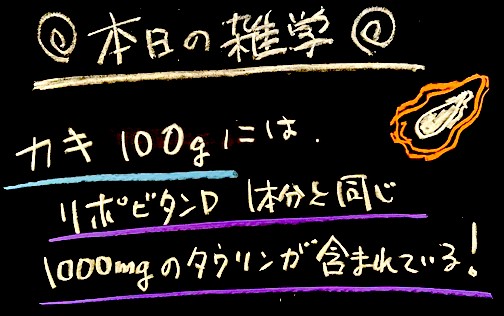 本日の雑学
カキ 100gには
リポビタンD 1本分と同じ
1000mgのタウリンが含まれている!